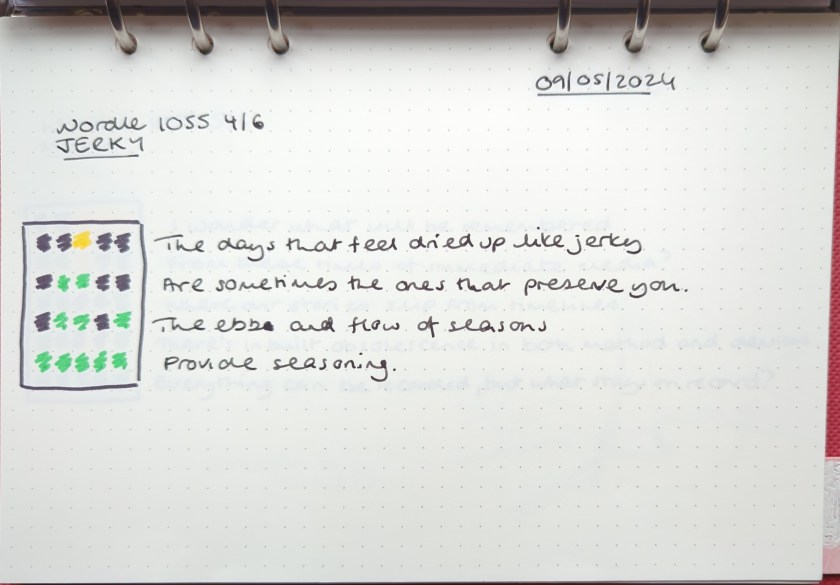 09/05/2024
Wordle 1055 4/6
JERKY
The days that feel dried up like jerky
Are sometimes the ones that preserve you.
The ebbs and flow of seasons
Provide seasoning.